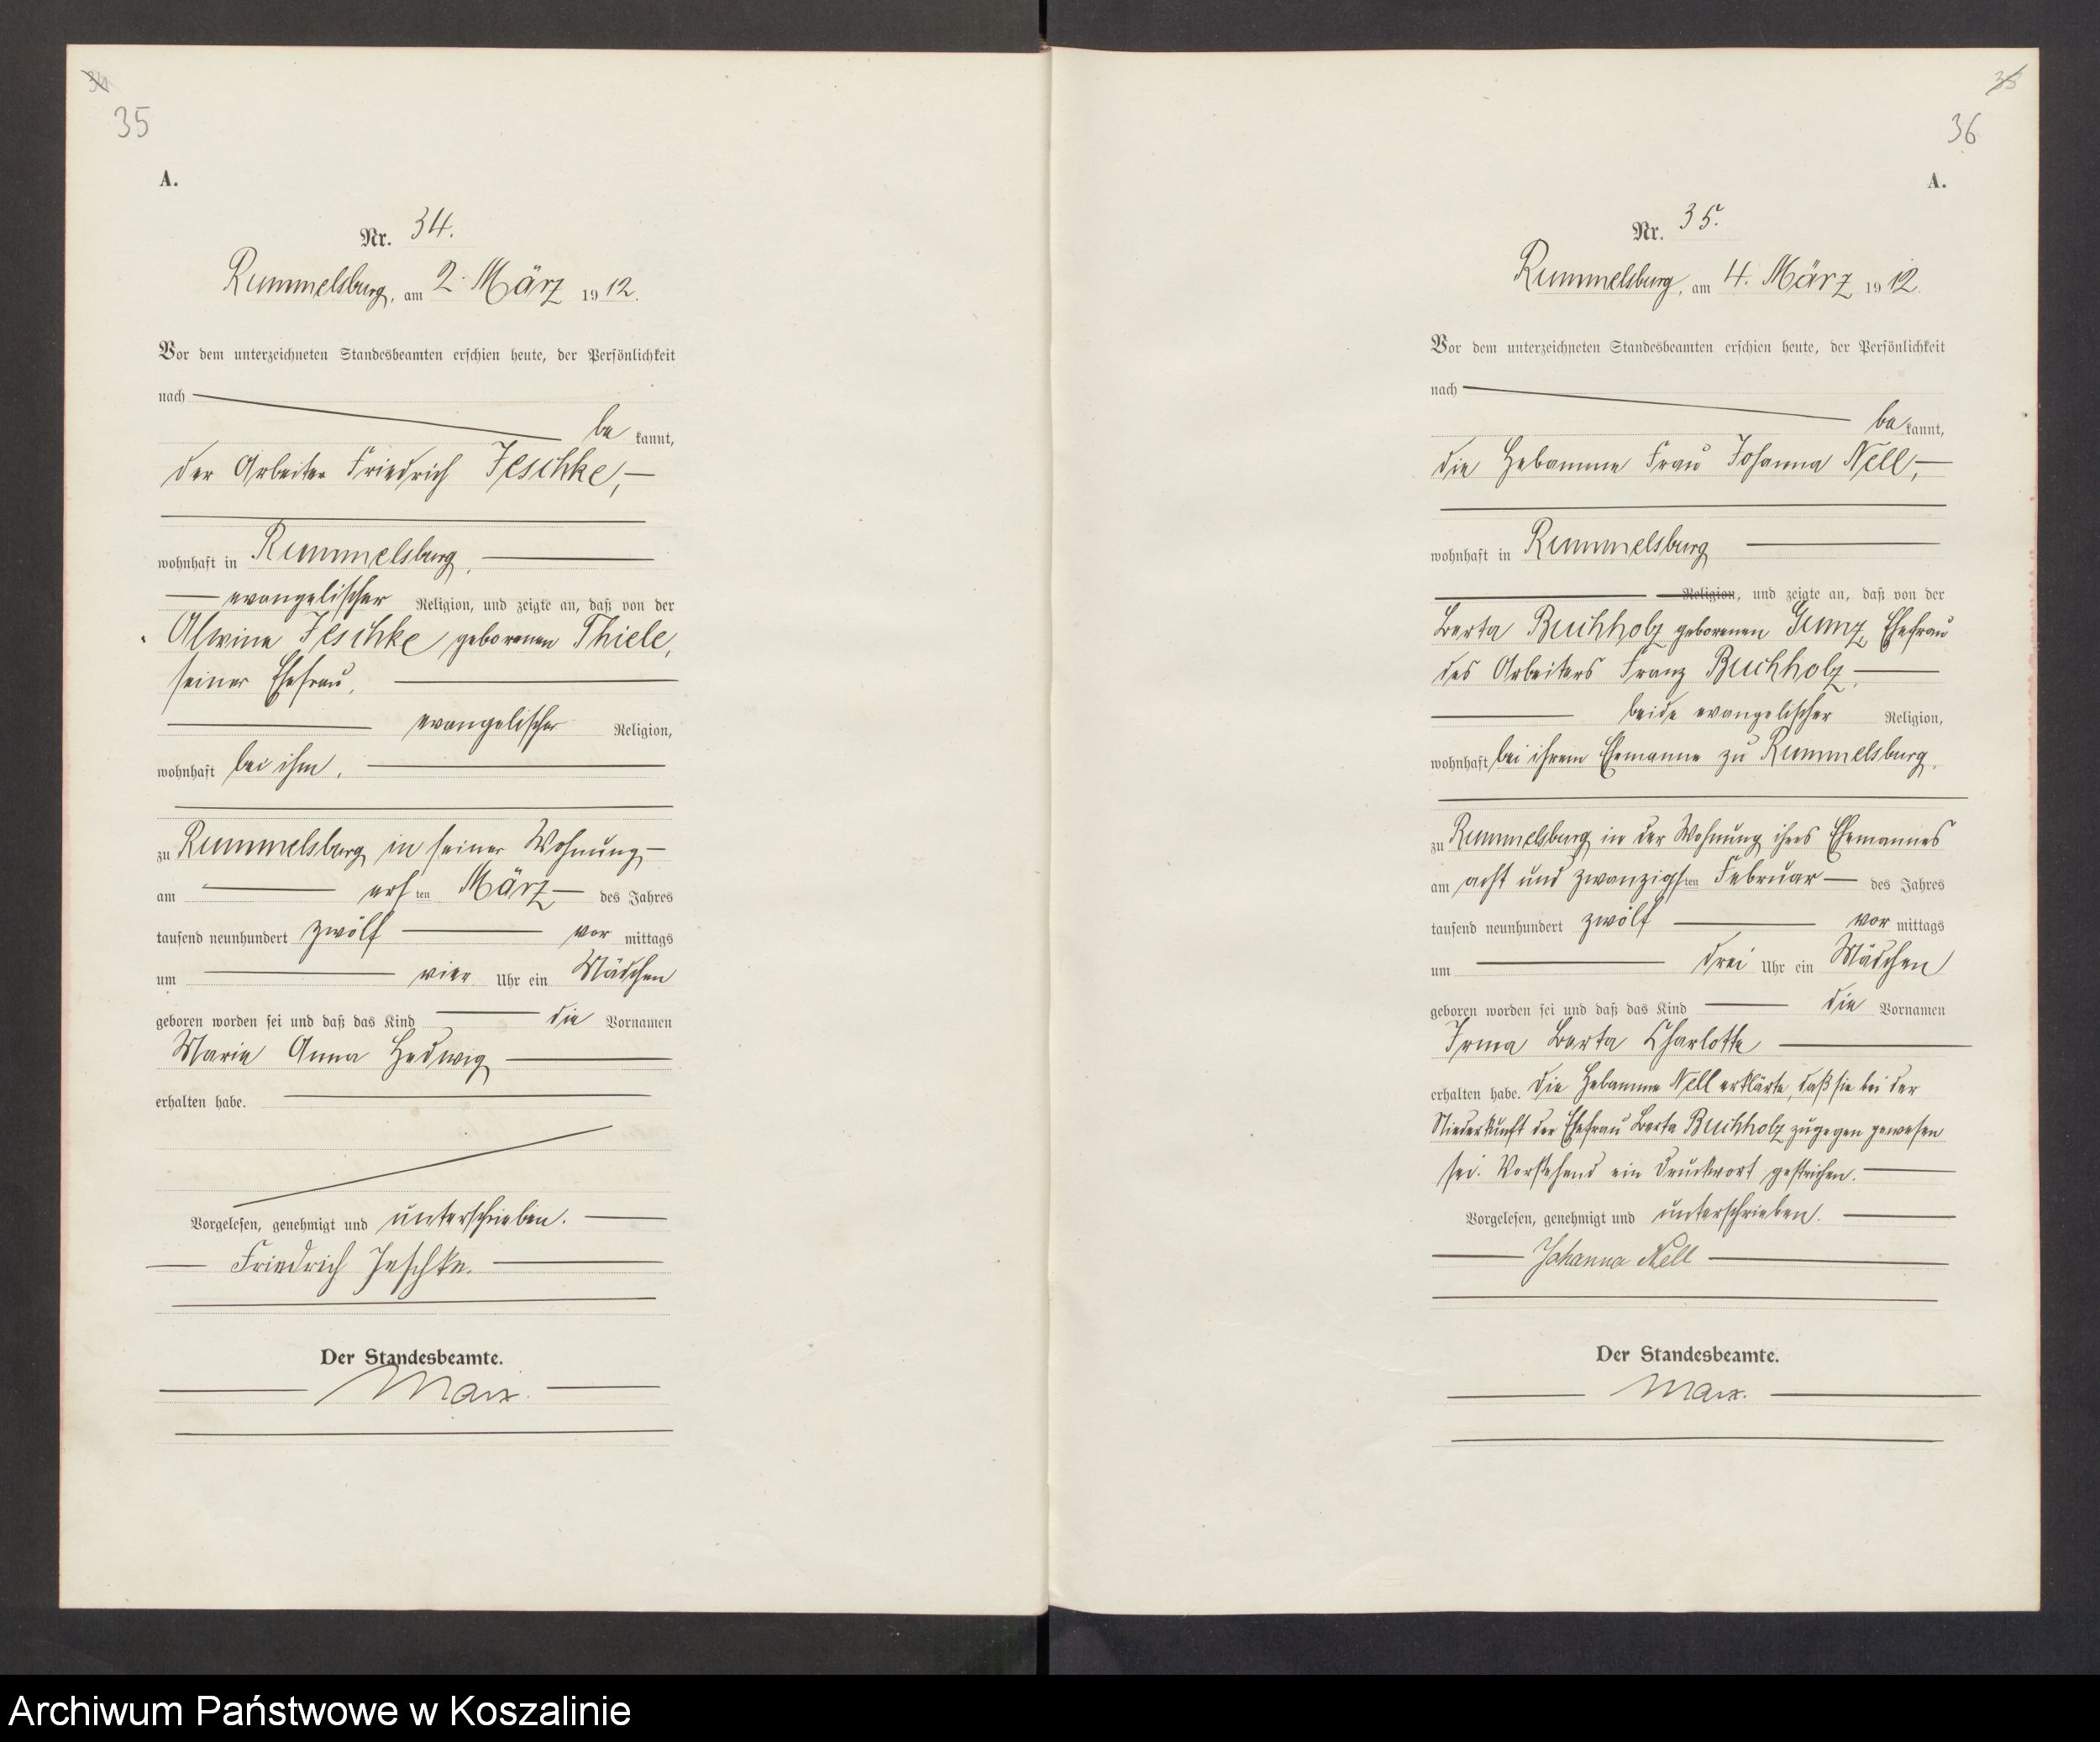 34
35
A.
Nr. 34.
Rummelsburg, am 2. März 1912.
Vor dem unterzeichneten Standesbeamten erschien heute, der Persönlichkeit
nach
be kannt,
der Arbeiter Friedrich Jeschke,
wohnhaft in Rummelsburg,
evangelischer Religion, und zeigte an, daß von der
Alwine Jeschke geborenen Thiele,
seiner Ehefrau,
evangelischer Religion,
wohnhaft bei ihm,
zu Rummelsburg in seiner Wohnung
am ersten März des Jahres
tausend neunhundert zwölf vor mittags
um vier Uhr ein Mädchen
geboren worden sei und daß das Kind die Vornamen
Marie Anna Hedwig
erhalten habe.
Vorgelesen, genehmigt und unterschrieben.
Friedrich Jeschke.
Der Standesbeamte.
Marx.
35
36
A.
Nr. 35.
Rummelsburg, am 4. März 1912.
Vor dem unterzeichneten Standesbeamten erschien heute, der Persönlichkeit
nach
be kannt,
die Hebamme Frau Johanna Nell,
wohnhaft in Rummelsburg
Religion, und zeigte an, daß von der
Berta Buchholz geborenen Gunz, Ehefrau
des Arbeiters Franz Buchholz,
beide evangelischer Religion,
wohnhaft bei ihrem Ehemanne zu Rummelsburg,
zu Rummelsburg in der Wohnung ihres Ehemannes
am acht und zwanzigsten Februar des Jahres
tausend neunhundert zwölf vor mittags
um drei Uhr ein Mädchen
geboren worden sei und daß das Kind die Vornamen
Irma Berta Charlotte
erhalten habe. Die Hebamme Nell erklärte, daß sie bei der
Niederkunft der Ehefrau Berta Buchholz zugegen gewesen
sei. Vorstehend ein Druckwort gestrichen.
Vorgelesen, genehmigt und unterschrieben.
Johanna Nell
Der Standesbeamte.
Marx.
Archiwum Państwowe w Koszalinie